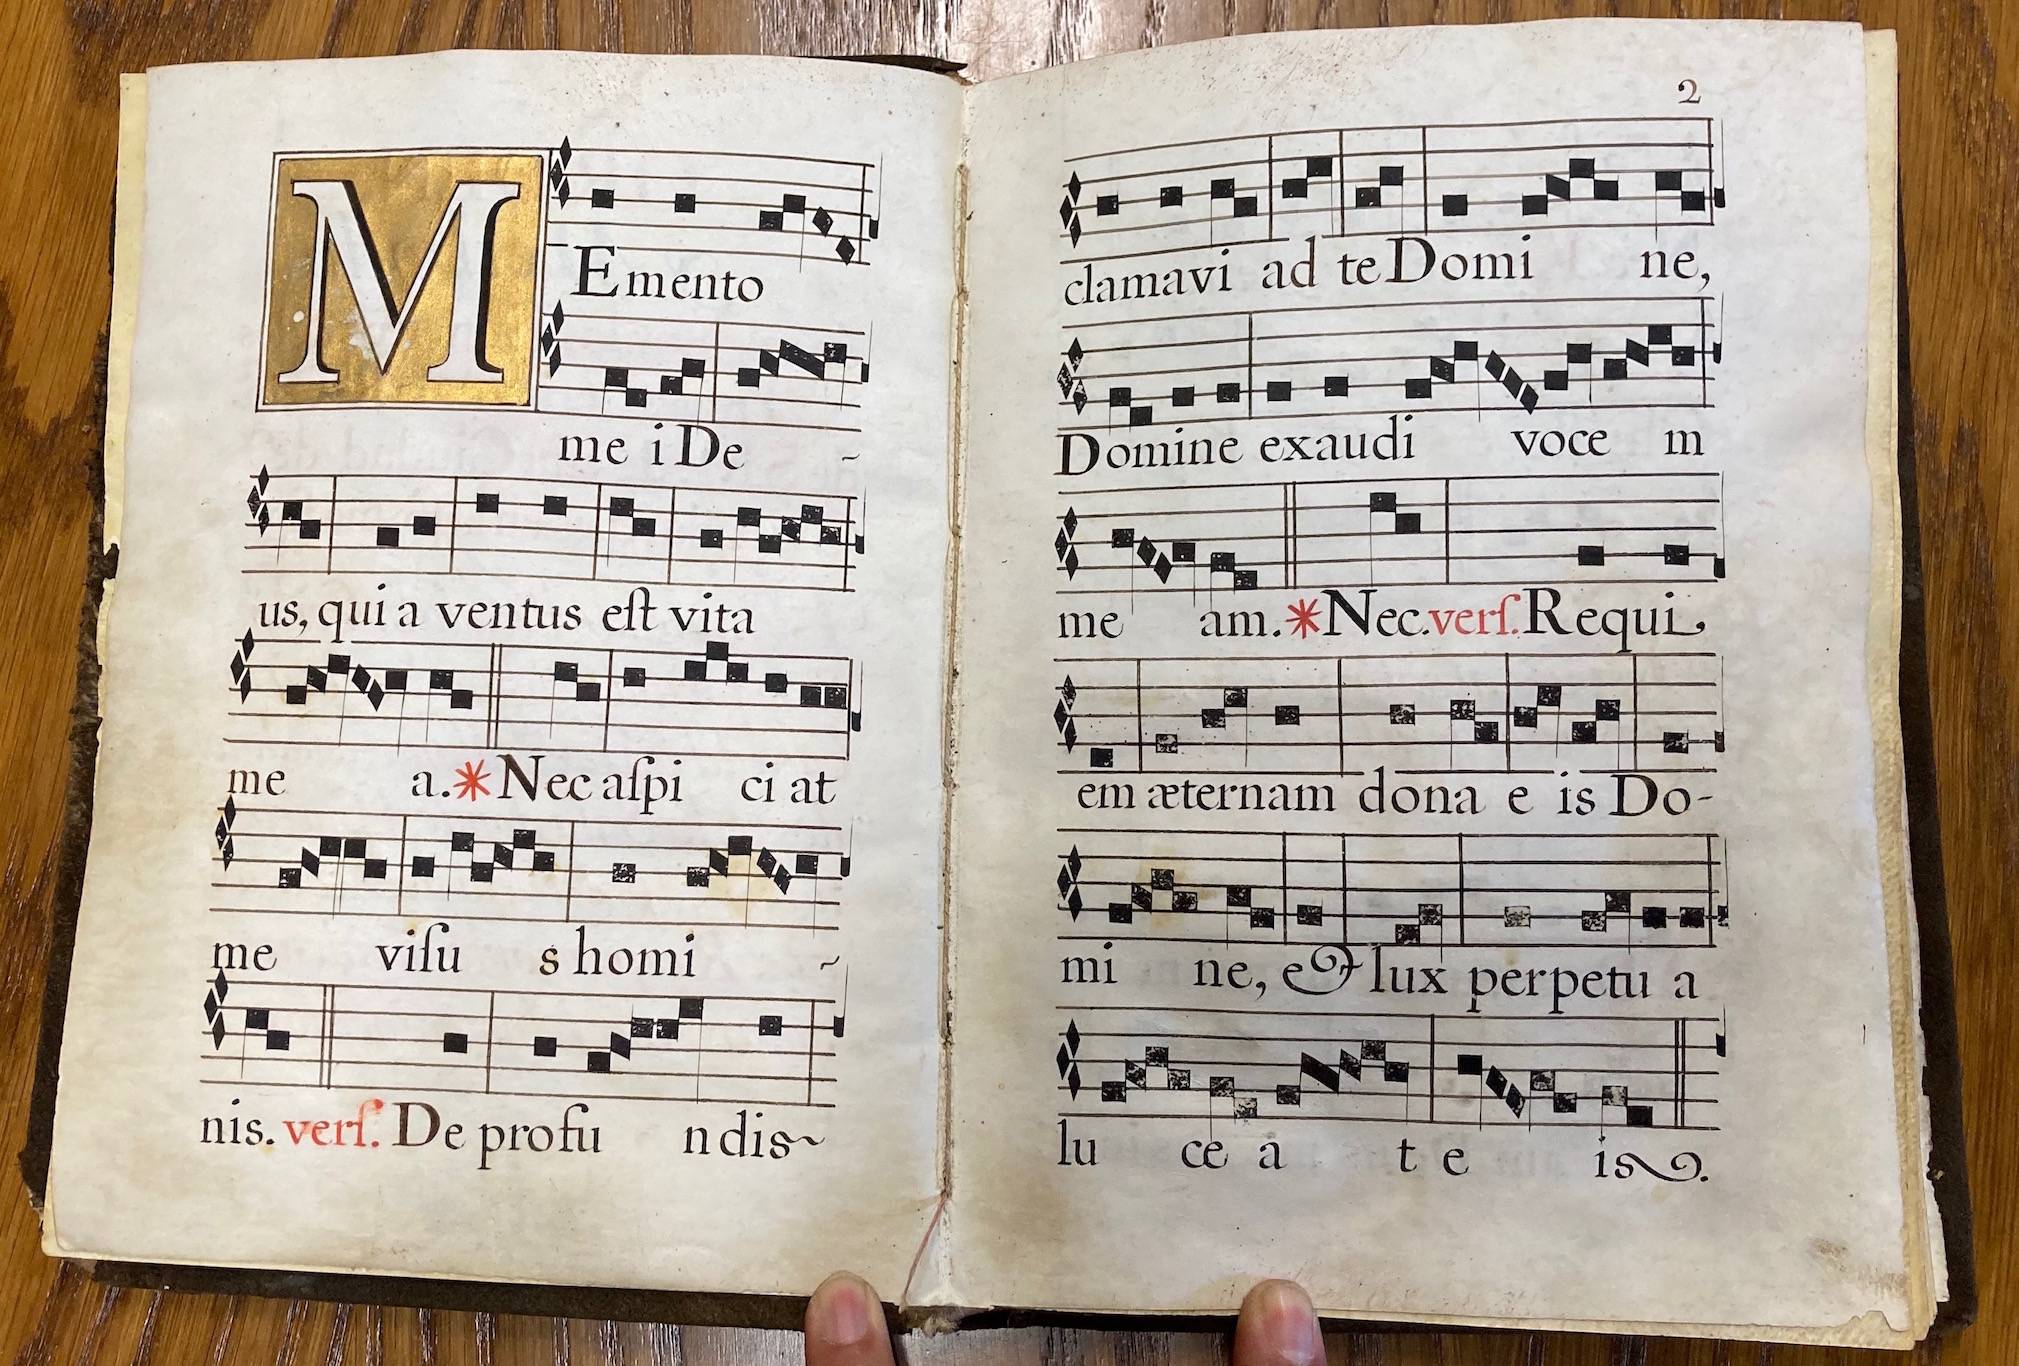 MEmento
me i De -
us, qui a ventus eſt vita
me a. * Nec aſpi ci at
me viſu s homi -
nis. verſ. De profu n dis~
2
clamavi ad te Domi ne,
Domine exaudi voce m
me am. * Nec. verſ. Requi
em æternam dona e is Do-
mi ne, & lux perpetu a
lu ce a t e is.